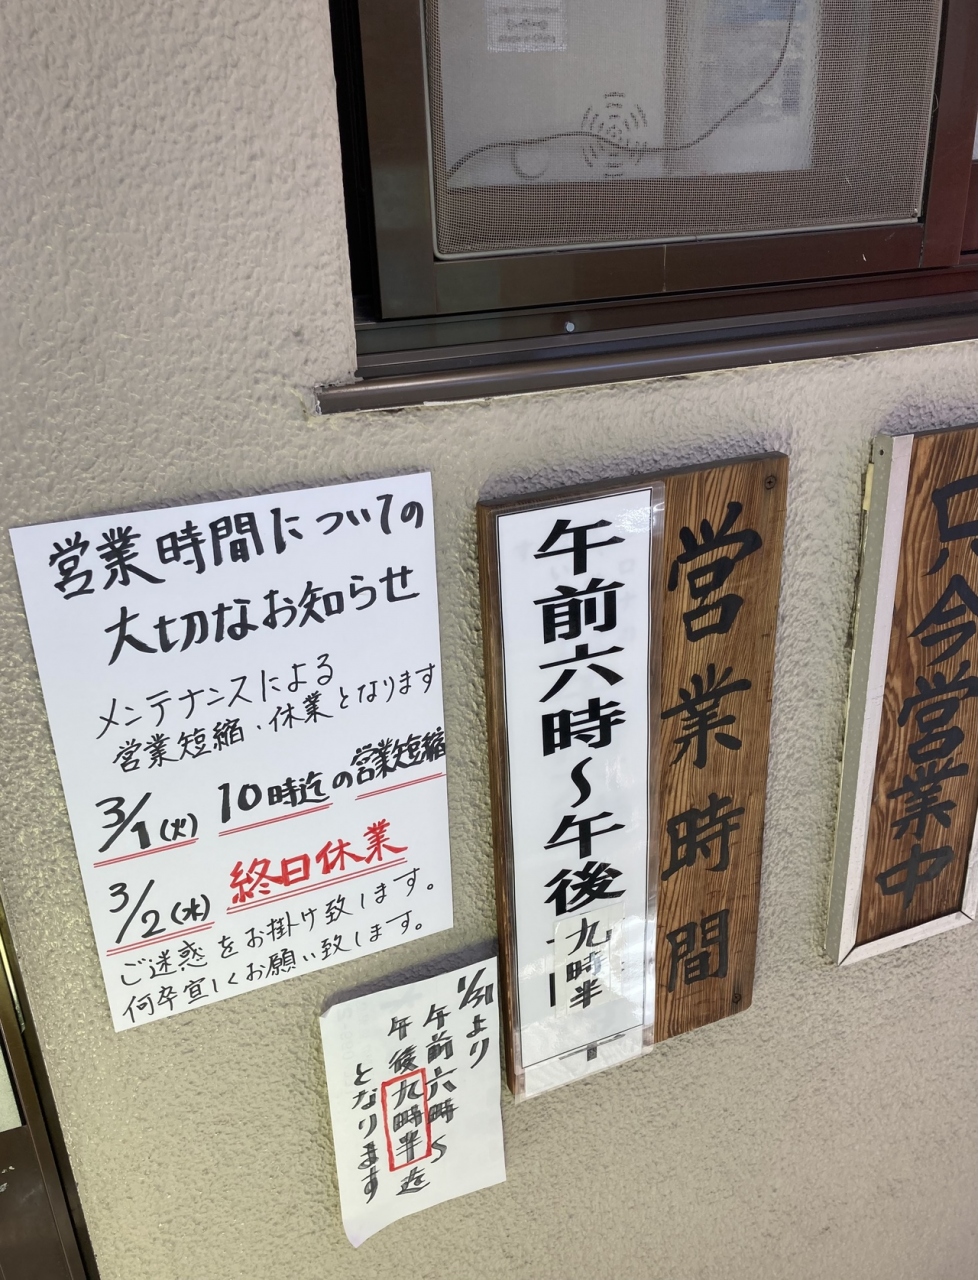 営業時間についての
大切なお知らせ
メンテナンスによる
営業短縮・休業となります
3/1(火) 10時迄の営業短縮
3/2(水) 終日休業
ご迷惑をお掛け致します。
何卒宜しくお願い致します。
営業時間
午前六時～午後九時半
只今営業中
午前六時～
午後九時半迄
となります